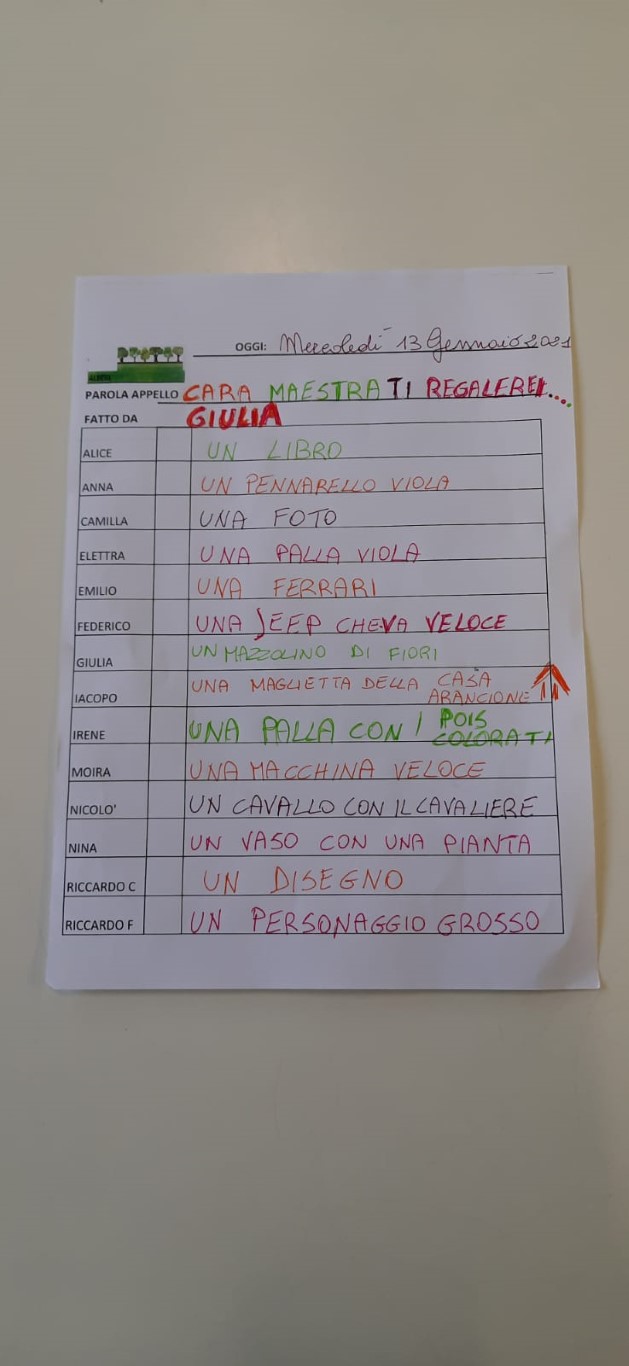 OGGI: Mercoledì 13 Gennaio 2021
PAROLA APPELLO CARA MAESTRA TI REGALEREI....
FATTO DA GIULIA
ALICE UN LIBRO
ANNA UN PENNARELLO VIOLA
CAMILLA UNA FOTO
ELETTRA UNA PALLA VIOLA
EMILIO UNA FERRARI
FEDERICO UNA JEEP CHE VA VELOCE
GIULIA UN MAZZOLINO DI FIORI
IACOPO UNA MAGLIETTA DELLA CASA
ARANCIONE
IRENE UNA PALLA CON I POIS
COLORATI
MOIRA UNA MACCHINA VELOCE
NICOLO' UN CAVALLO CON IL CAVALIERE
NINA UN VASO CON UNA PIANTA
RICCARDO C UN DISEGNO
RICCARDO F UN PERSONAGGIO GROSSO